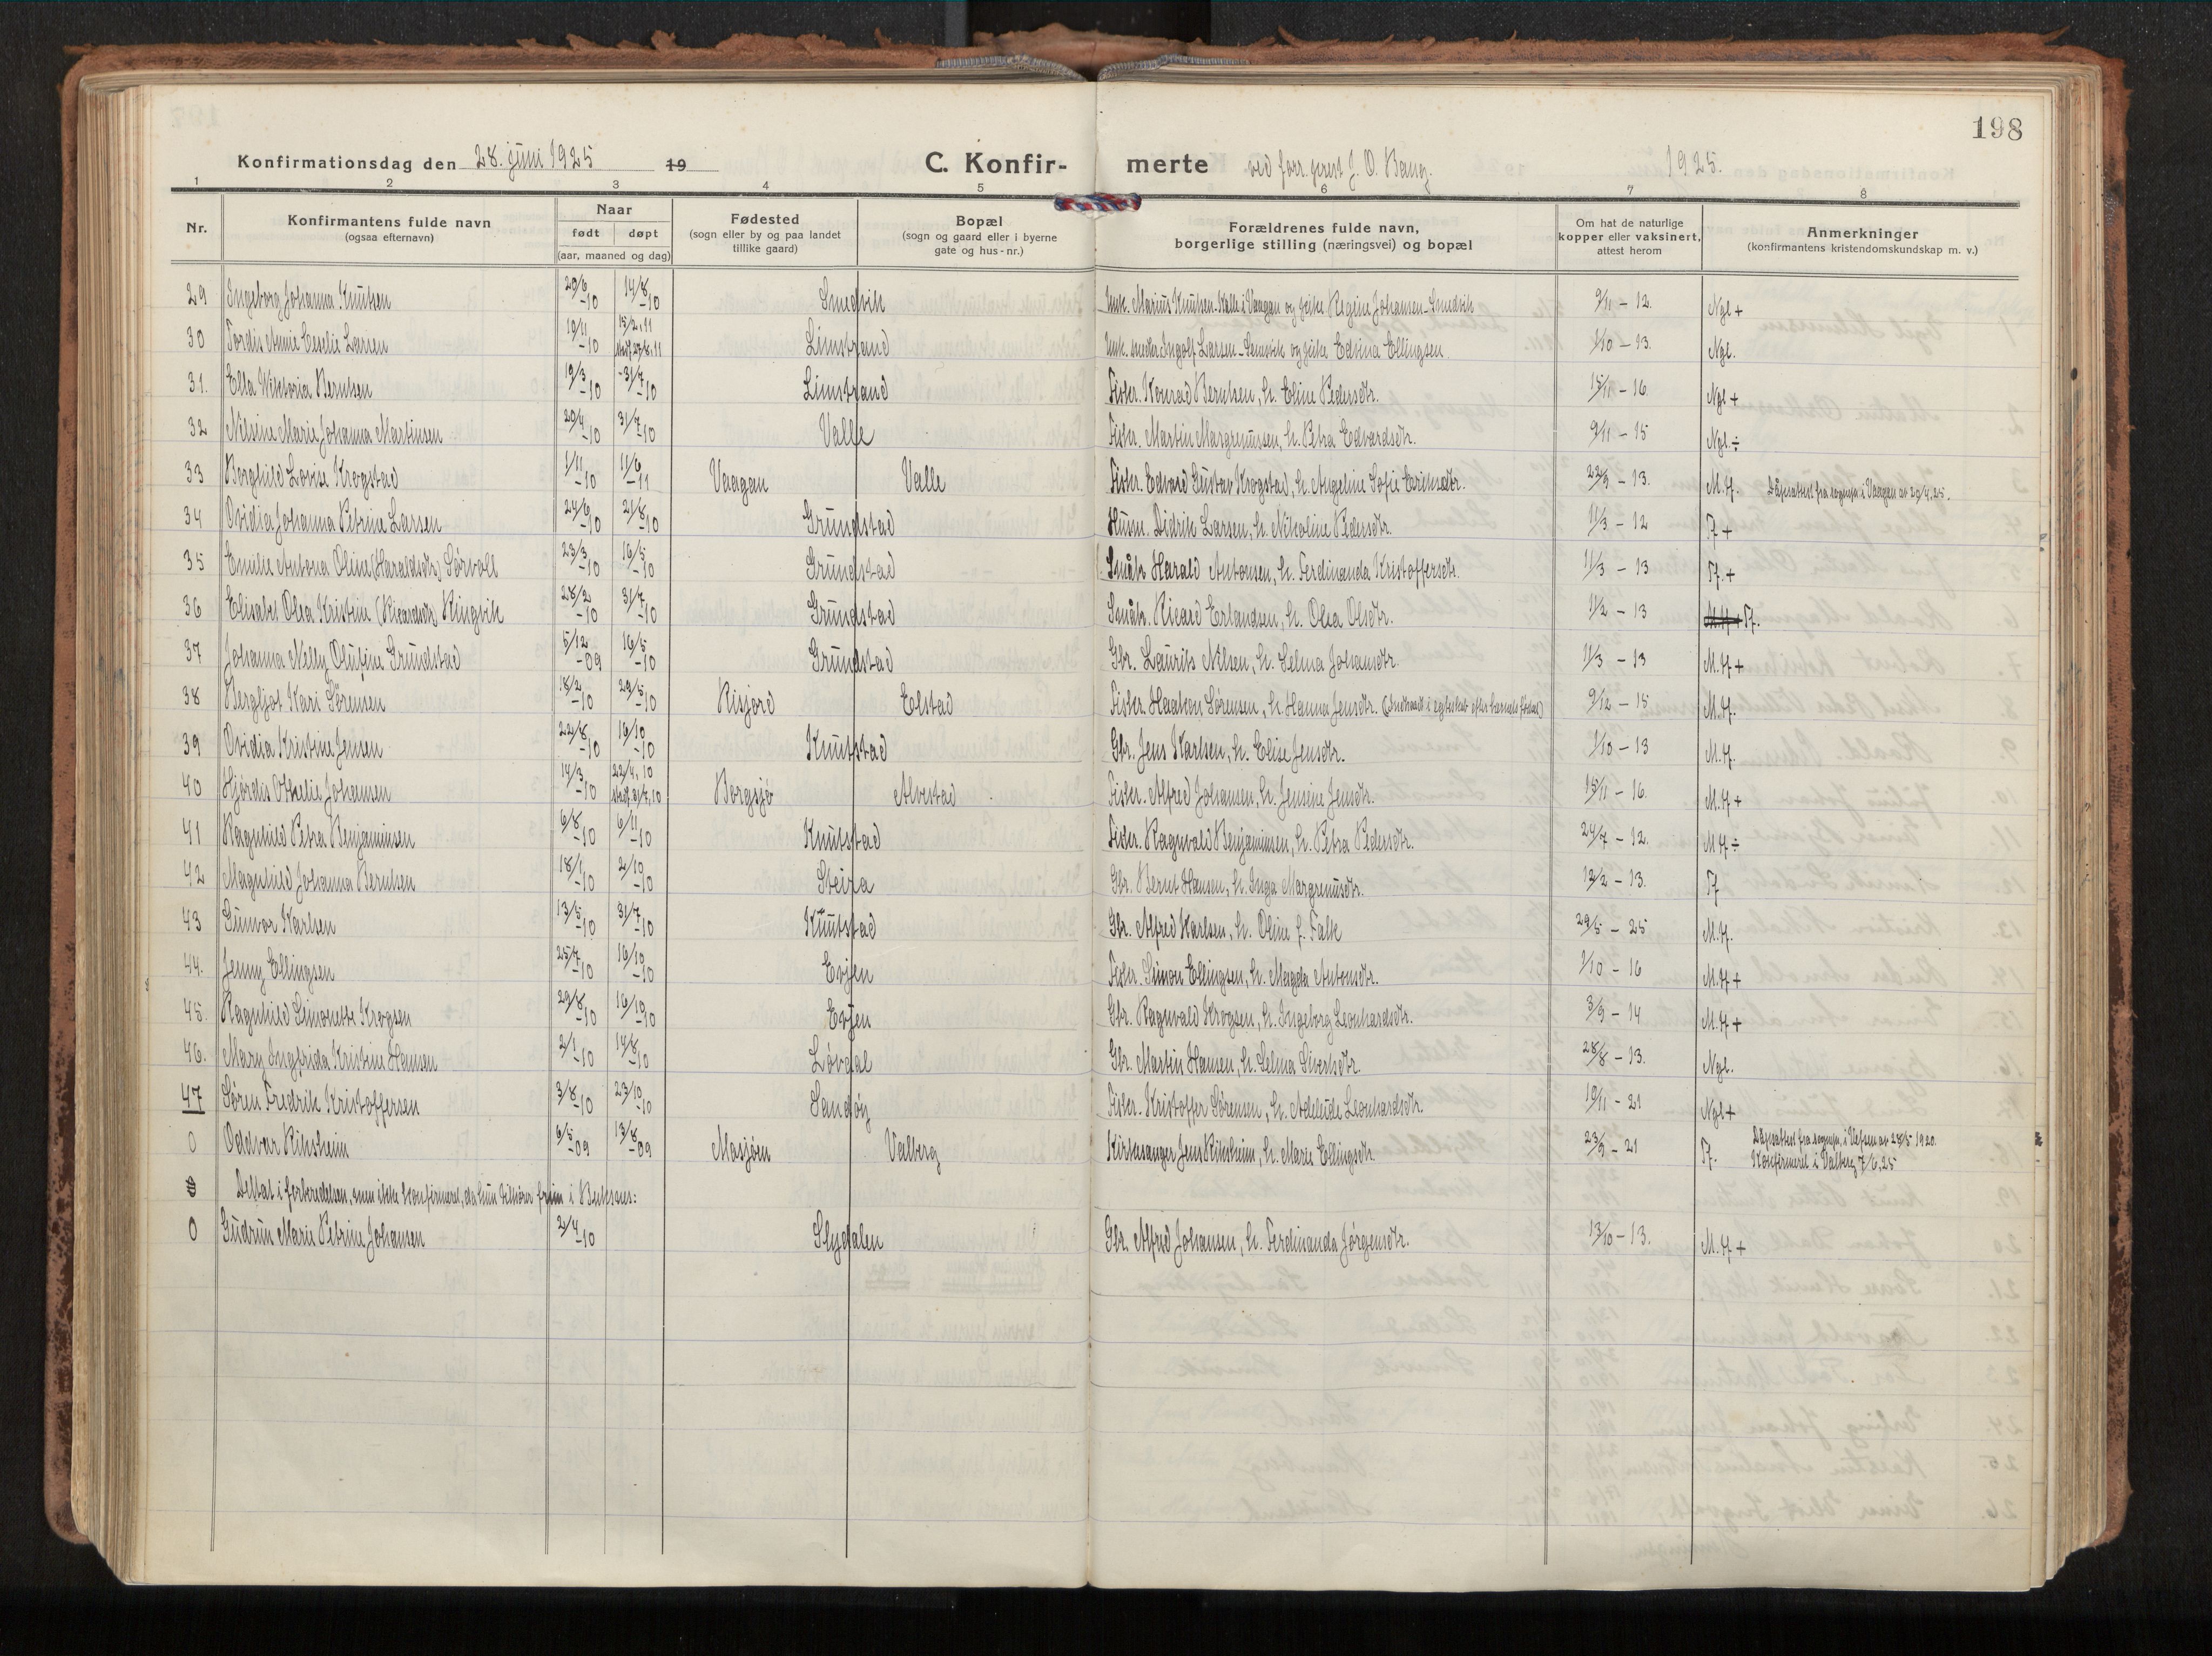 198
Konfirmationsdag den 28. juni 1925 19 C. Konfir- merte ved forr. prest J. O. Bang. 1925.
1 2 3 4 5 6 7 8
Nr. Konfirmantens fulde navn (ogsaa efternavn) Naar født døpt (aar, maaned og dag) Fødested (sogn eller by og paa landet tillike gaard) Bopæl (sogn og gaard eller i byerne gate og hus-nr.) Forældrenes fulde navn, borgerlige stilling (næringsvei) og bopæl Om hat de naturlige kopper eller vaksinert, attest herom Anmerkninger (konfirmantens kristendomskundskap m. v.)
29 Ingeborg Johanna Knutsen 29/6-10 14/8-10 Smedvik Unk. Marius Knutsen-Kalle i Vaagan og pike Regine Johansen-Smedvik 9/11-12. Ngl+
30 Tordis Annie Ceselie Larsen 19/11-10 15/2.11 stadf. 27/8.11 Limstrand Unk. Ingolf Larsen-Sennvik og pike Edvina Ellingsen. 1/10-13. Ngl.
31. Ella Viktoria Berntsen 19/3-10 31/7-10 Limstrand Fisker. Konrad Berntsen, h. Eline Pedersdtr. 15/11-16. Ngl+
32 Nilsine Marie Johanna Martinsen 29/4-10 31/7-10 Valle Fisker. Martin Margrenussen, h. Petra Edvardsdtr. 9/11-15 Ngl.÷
33 Borghild Lovise Krogstad 1/11-10 11/6-11 Vaagan Valle Fisker. Edvard Gustav Krogstad, h. Angeline Sofie Eriksdtr. 22/9-13. M.H. Dåpsattest fra sognepr. i Vaagan av 29/4.25.
34 Ovidia Johanna Petrine Larsen 24/6-10 21/8-10 Grundstad Husm. Didrik Larsen, h. Nikoline Pedersdtr. 11/3-12 H+
35 Emilie Antona Oline (Haraldsdtr) Sørvoll 23/3-10 16/5-10 Grundstad Småbr. Harald Antonsen, h. Ferdinanda Kristoffersdtr. 11/3-13 H.+
36 Elisabet Olea Kristine (Ricardsdtr) Ringvik 28/2-10 31/7-10 Grundstad Småbr. Ricard Erlandsen, h. Olea Olsdtr. 1/2-13 M.H+ H.
37 Johanna Nelly Olufine Grundstad 5/12-09 16/5-10 Grundstad Gbr. Laurits Nilsen, h. Selma Johansdtr. 11/3-13 M.H+
38 Bergljot Kari Sørensen 18/2-10 29/5-10 Risjord Elstad Fisker. Haakon Sørensen, h. Hanna Jensdtr. (Indtraadt i egteskab efter barnets fødsel) 9/12-15 M.H.
39 Ovidia Kristine Jensen 22/8-10 16/10-10 Knutstad Gbr. Jens Karlsen, h. Elise Jensdtr. 1/10-13 M.H.
40 Hjørdis Othelie Johansen 14/3-10 22/4.10 stadf. 31/7.10 Borgsjø Alvestad Fisker. Alfred Johansen, h. Jensine Jensdtr. 15/11-16. M.H+
41 Ragnhild Petra Benjaminsen 6/8-10 6/11-10 Knutstad Fisker. Ragnvald Benjaminsen, h. Petra Pedersdtr. 24/7-12. M.H÷
42 Magnhild Johanna Berntsen 18/1-10 2/10-10 Steira Gbr. Bernt Hansen, h. Inga Margrenusdtr. 12/2-13. H
43 Gunvor Karlsen 13/5-10 31/7-10 Knutstad Gbr. Alfred Karlsen, h. Oline f. Falk 29/5-25 M.H.
44. Jenny Ellingsen 25/7-10 16/10-10 Evjen Fisker. Simon Ellingsen, h. Magda Antonsdtr. 1/10-16 M.H+
45. Ragnhild Simonette Krogsen 29/8-10 16/10-10 Evjen Gbr. Ragnvald Krogsen, h. Ingeborg Leonhardsdtr. 3/9-14 M.H+
46. Mary Ingfrida Kristine Hansen 2/1-10 14/8-10 Løvdal Gbr. Martin Hansen, h. Selma Sivertsdtr. 28/8-13. Ngl.
47 Søren Fredrik Kristoffersen 3/8-10 23/10-10 Sandøy Fisker. Kristoffer Sørensen, h. Adeleide Leonhardsdtr. 19/11-21 Ngl+
0 Oddvar Riksheim 6/5-09 13/8-09 Mosjøen Valberg Kirkesanger Jens Riksheim, h. Marie Ellingsdtr. 23/9-21 H. Dåpsattest fra sognepr. i Vefsen av 28/5 1920. Konfirmert i Valberg 7/6.25
Deltat i forberedelsen, men ikke konfirmert, da hun tilhører frim. i Buksnes:
0 Gudrun Marie Petrine Johansen 2/4-10 Slydalen Gbr. Alfred Johansen, h. Ferdinanda Jørgensdtr. 13/10-13. M.H+